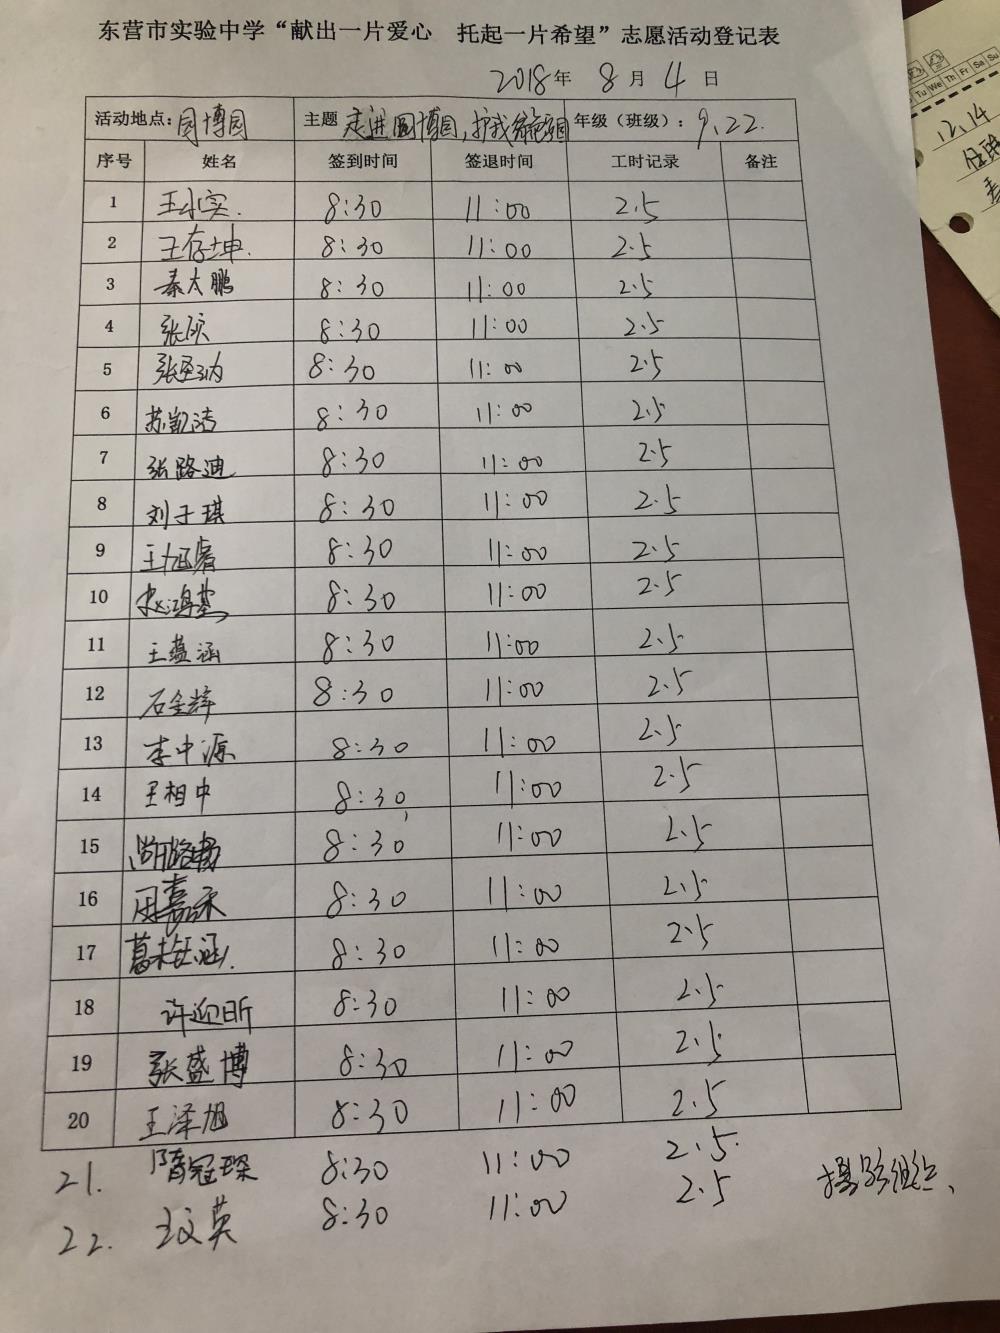 东营市实验中学“献出一片爱心 托起一片希望”志愿活动登记表
2018年 8月 4日
活动地点:园博园 主题 走进园博园,护我 家园 年级(班级):9.22.
序号 姓名 签到时间 签退时间 工时记录 备注
1 王小实. 8:30 11:00 2.5
2 王存坤. 8:30 11:00 2.5
3 秦大鹏 8:30 11:00 2.5
4 张颀 8:30 11:00 2.5
5 张 8:30 11:00 2.5
6 苏凯洁 8:30 11:00 2.5
7 张路迪 8:30 11:00 2.5
8 刘于琪 8:30 11:00 2.5
9 王旭 8:30 11:00 2.5
10 赵鸿 8:30 11:00 2.5
11 王蕴涵 8:30 11:00 2.5
12 石金辉 8:30 11:00 2.5
13 李中源 8:30 11:00 2.5
14 王相中 8:30 11:00 2.5
15 8:30 11:00 2.5
16 周嘉禾 8:30 11:00 2.5
17 葛 涵. 8:30 11:00 2.5
18 许迎昕 8:30 11:00 2.5
19 张盛博 8:30 11:00 2.5
20 王泽旭 8:30 11:00 2.5
21. 隋冠琛 8:30 11:00 2.5.
22. 王文英 8:30 11:00 2.5 摄影组
Tu We Th Fr Sa Su
12.14